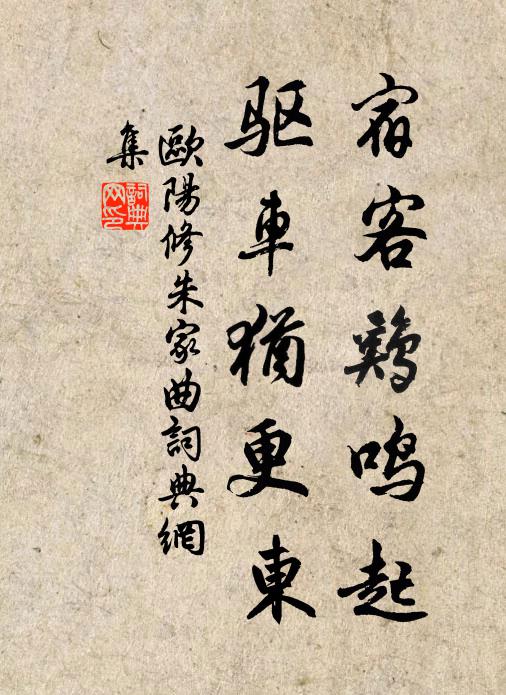 宿客鷄鳴起
驱車猶更東
歐陽修朱家曲詞典網
集
詞典
网印